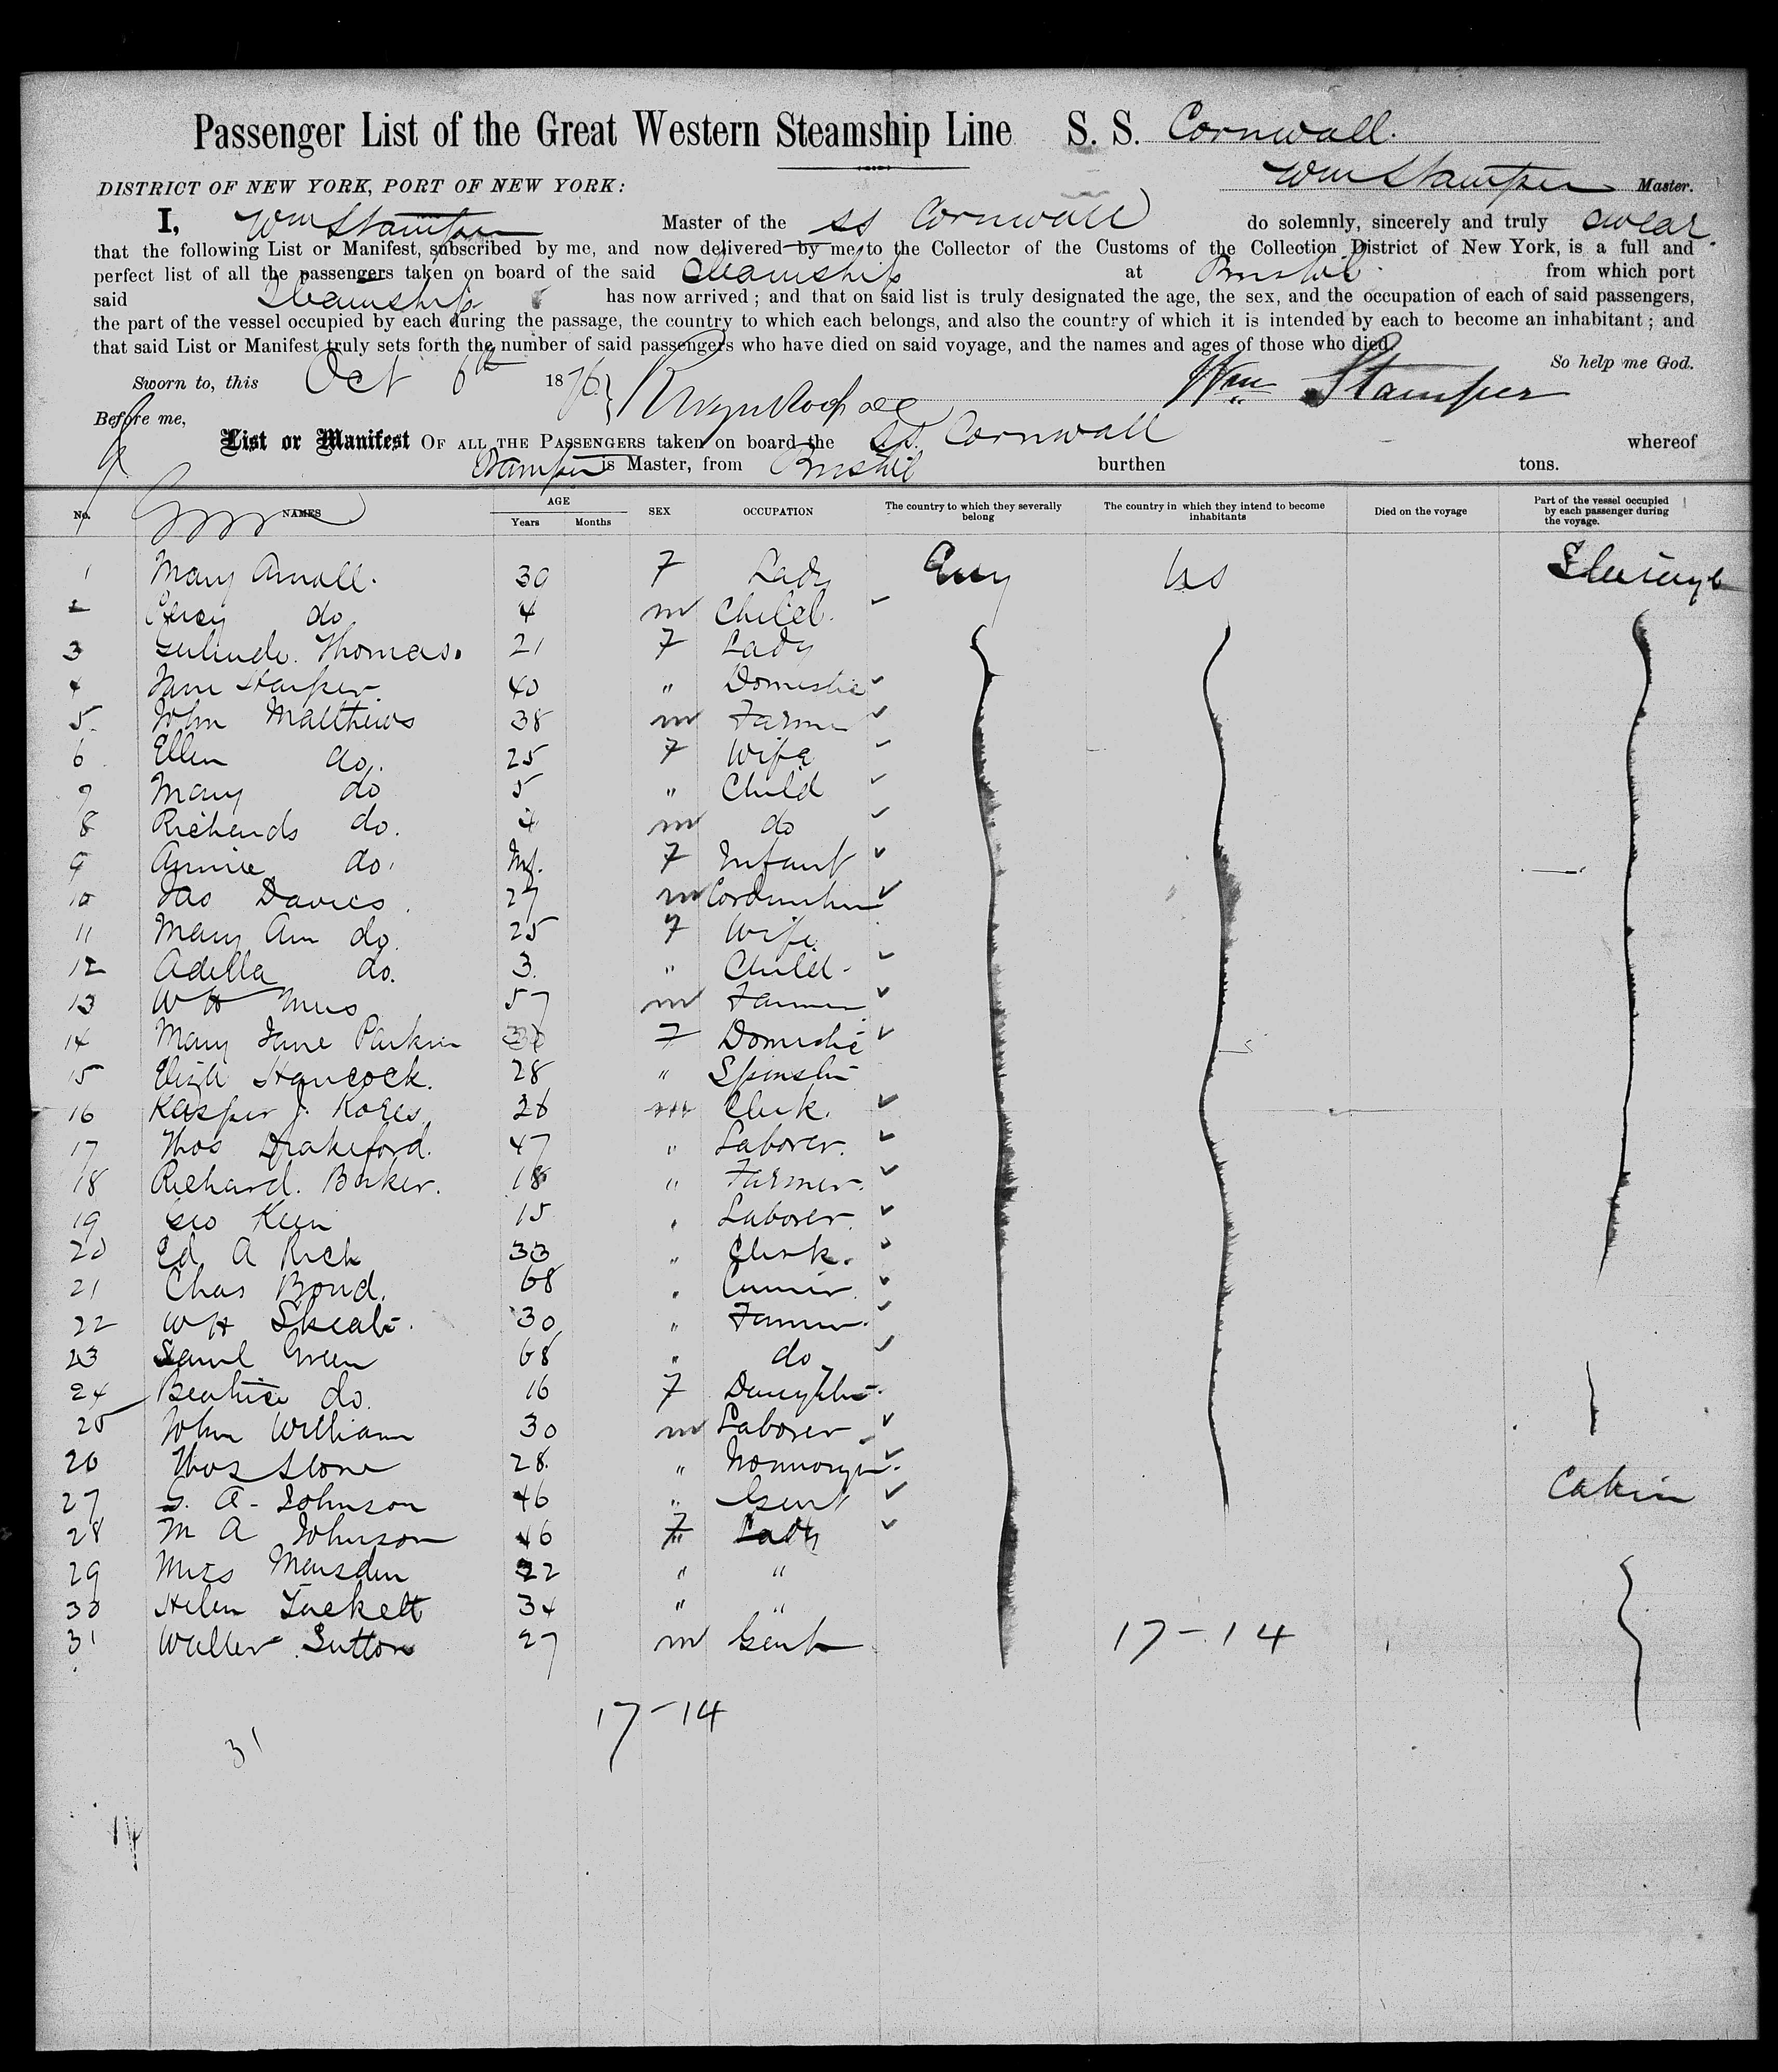 Passenger List of the Great Western Steamship Line S. S. Cornwall.
DISTRICT OF NEW YORK, PORT OF NEW YORK: Wm Stamper Master.
I, Wm Stamper Master of the SS Cornwall do solemnly, sincerely and truly swear.
that the following List or Manifest, subscribed by me, and now delivered by me to the Collector of the Customs of the Collection District of New York, is a full and
perfect list of all the passengers taken on board of the said Steamship at Bristol from which port
said Steamship has now arrived; and that on said list is truly designated the age, the sex, and the occupation of each of said passengers,
the part of the vessel occupied by each during the passage, the country to which each belongs, and also the country of which it is intended by each to become an inhabitant; and
that said List or Manifest truly sets forth the number of said passengers who have died on said voyage, and the names and ages of those who died.
So help me God.
Sworn to, this Oct 6th 1876 Wm Stamper
Before me,
List or Manifest OF ALL THE PASSENGERS taken on board the SS. Cornwall whereof
Stamper is Master, from Bristol burthen tons.
No. NAMES AGE Years Months SEX OCCUPATION The country to which they severally belong The country in which they intend to become inhabitants Died on the voyage Part of the vessel occupied by each passenger during the voyage.
1 Mary Arnall. 30 F Lady Eng US Steerage
2 Percy do 4 m Child.
3 Thomas. 21 F Lady
4 Jane Harper 40 " Domestic
5 John Matthews 38 m Farmer
6 Ellen do. 25 F Wife
7 Mary do 5 " Child
8 Richards do. 4 m do
9 Annie do. Inf. F Infant
10 Jas Davies 27 m
11 Mary Ann do. 25 F Wife
12 Adella do. 3. " Child.
13 W H 57 m Farmer
14 Mary Jane F Domestic
15 Eliza Hancock. 28 " Spinster
16 Kasper J. m Clerk.
17 Thos Drakeford. 47 " Laborer.
18 Richard. Barker. 18 " Farmer.
19 Geo Keen 15 " Laborer.
20 Ed A Rich 33 " Clerk.
21 Chas Bond. 68 "
22 W H 30 " Farmer.
23 Saml Green 68 " do
24 Beatrice do. 16 F Daughter.
25 John William 30 m Laborer
26 Thos Stone 28. "
27 A. Johnson 46 " Gent Cabin
28 M A Johnson 46 F Lady
29 Miss Marsden 22 " "
30 Helen Tuckett 34 " "
31 Walter Sutton 27 m Gent 17-14
17-14
31
14